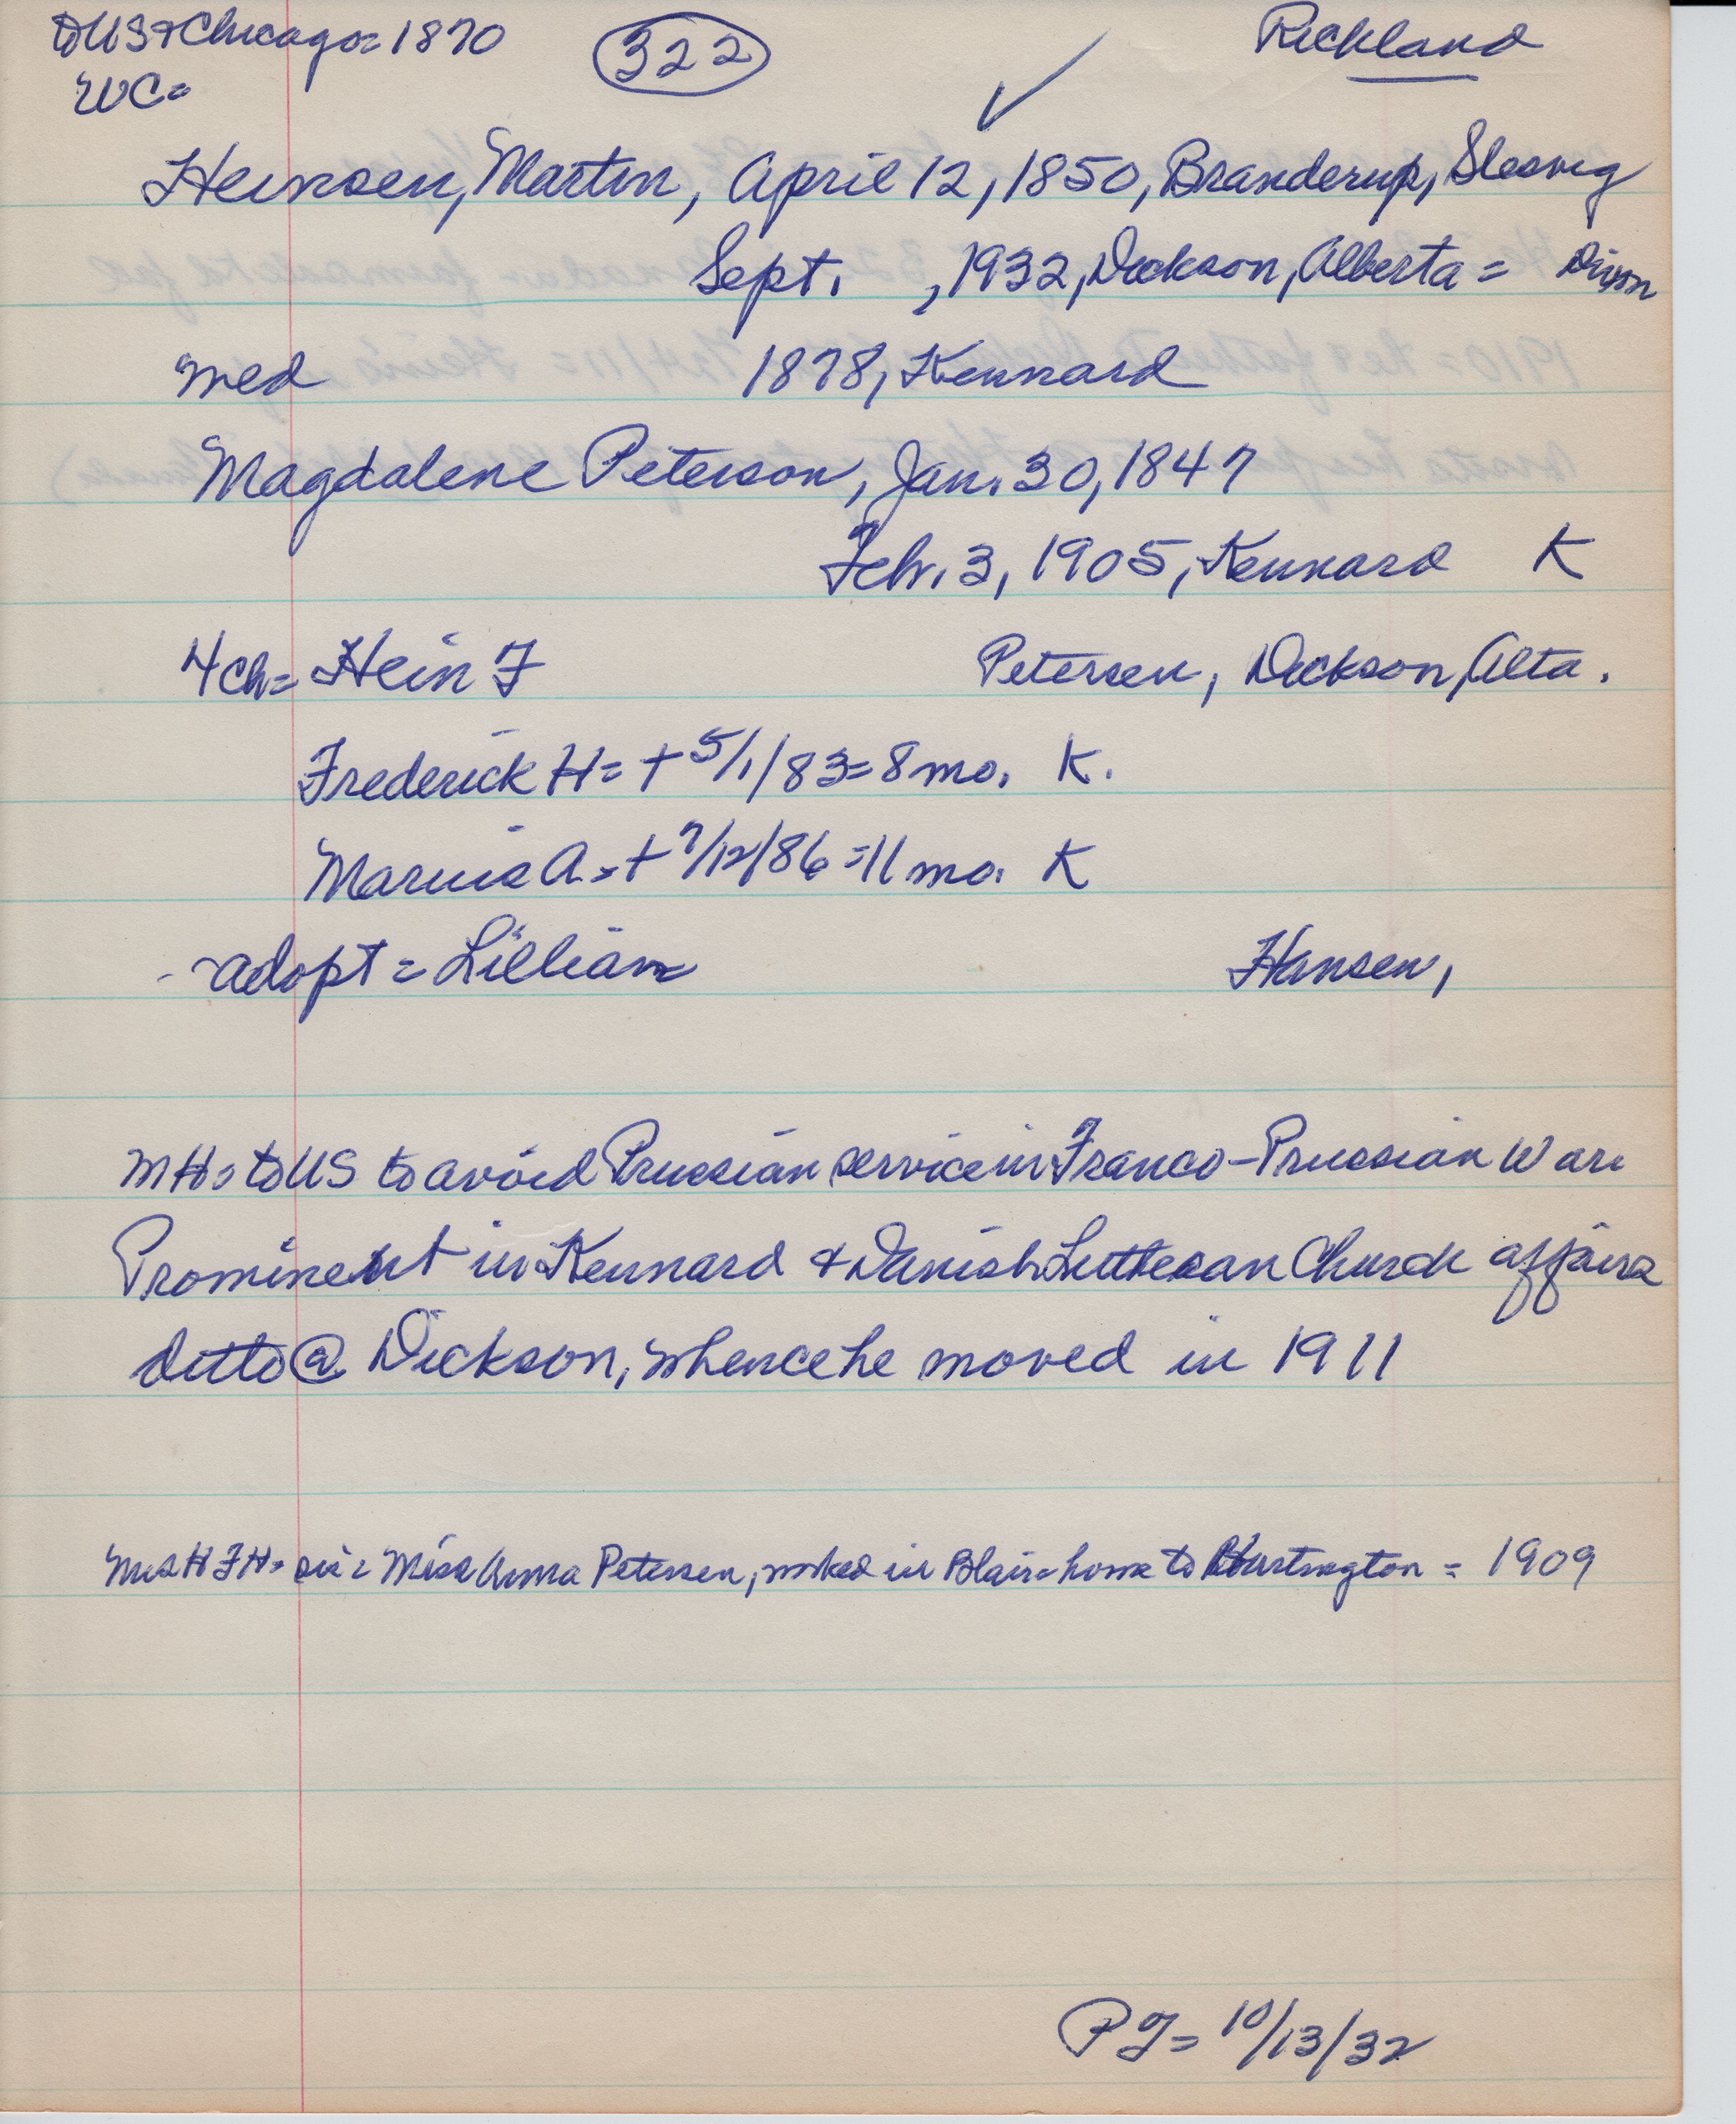 to US & Chicago = 1870 322 Richland
WC =
✓
Heinsen, Martin, April 12, 1850, Branderup, Slesvig
Sept. , 1932, Dickson, Alberta =
med 1878, Kennard
Magdalene Peterson, Jan. 30, 1847
Feb. 3, 1905, Kennard K
4 ch = Hein F Petersen, Dickson, Alta.
Frederick H = + 5/1/83 = 8 mo. K.
Marius A. = + 7/12/86 = 11 mo. K
adopt = Lillian Hansen,
MH = to US to avoid Prussian service in Franco-Prussian War.
Prominent in Kennard & Danish Lutheran Church affairs
ditto @ Dickson, whence he moved in 1911
Mrs H F H = sis = Miss Anna Petersen, worked in Blair = home to Hartington = 1909
= 10/13/32